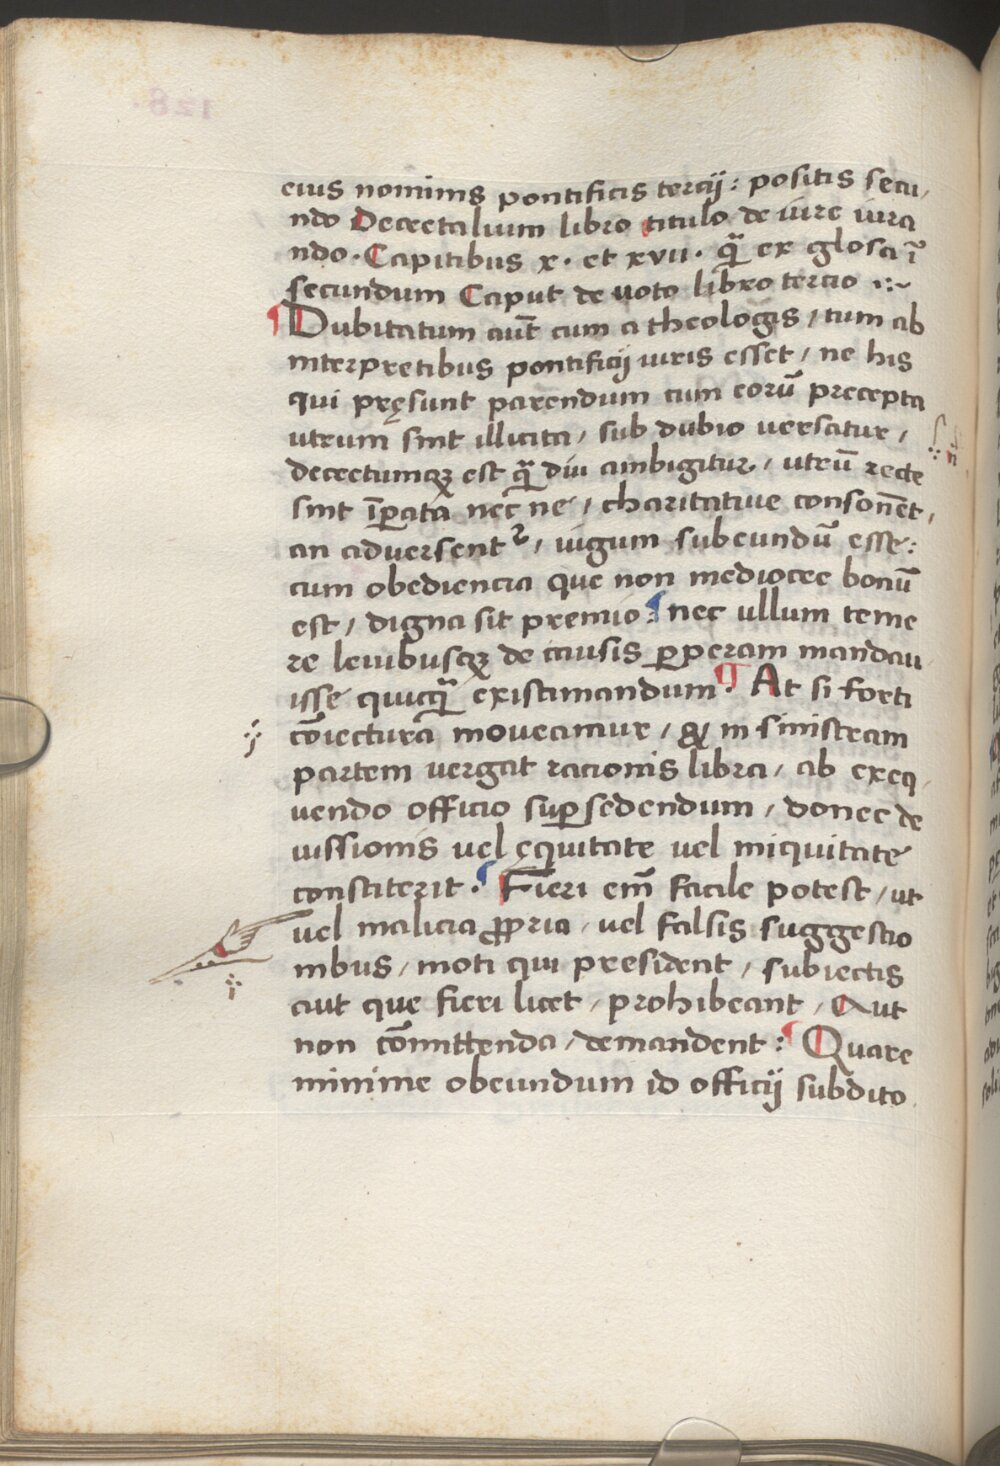 eius nominis pontificis tercij : positis secu,
ndo Decretalium libro titulo de iure iura
ndo · Capitibus x · et xvii · qᷓ ex glosa ī
secundum Caput de voto libro tercio
¶ Dubitatum aūt cum a theologis / tum ab
interpretibus pontificij iuris esset / ne his
qui pręsunt parendum cum eorū precepta
utrum sint illicita / sub dubio versatur /
decretumqꝫ est qᷓ diu ambigitur / utrū recte
sint īꝑata nec ne / charitatiue consonēt,
an adversentᷣ / iugum subeundū esse :
cum obediencia que non mediocre bonū
est / digna sit premio : nec ullum teme
re leuibusqꝫ de causis ꝑperam mandau
isse quicqᷓ existimandum · ¶ At si forti
cōiectura moveamur / qꝫ in sinistram
partem vergat racionis libra / ab exeq,
uendo officio suꝑsedendum / donec de
iussionis vel ęquitate vel iniquitate
constiterit · Fieri em̄ facile potest / ut
vel malicia ꝓpria / vel falsis suggestio
nibus / moti qui president / subiectis
aut que fieri licet / prohibeant / Aut
non cōmittenda / demandent : ¶ Quare
minime obeundum id officij subdito